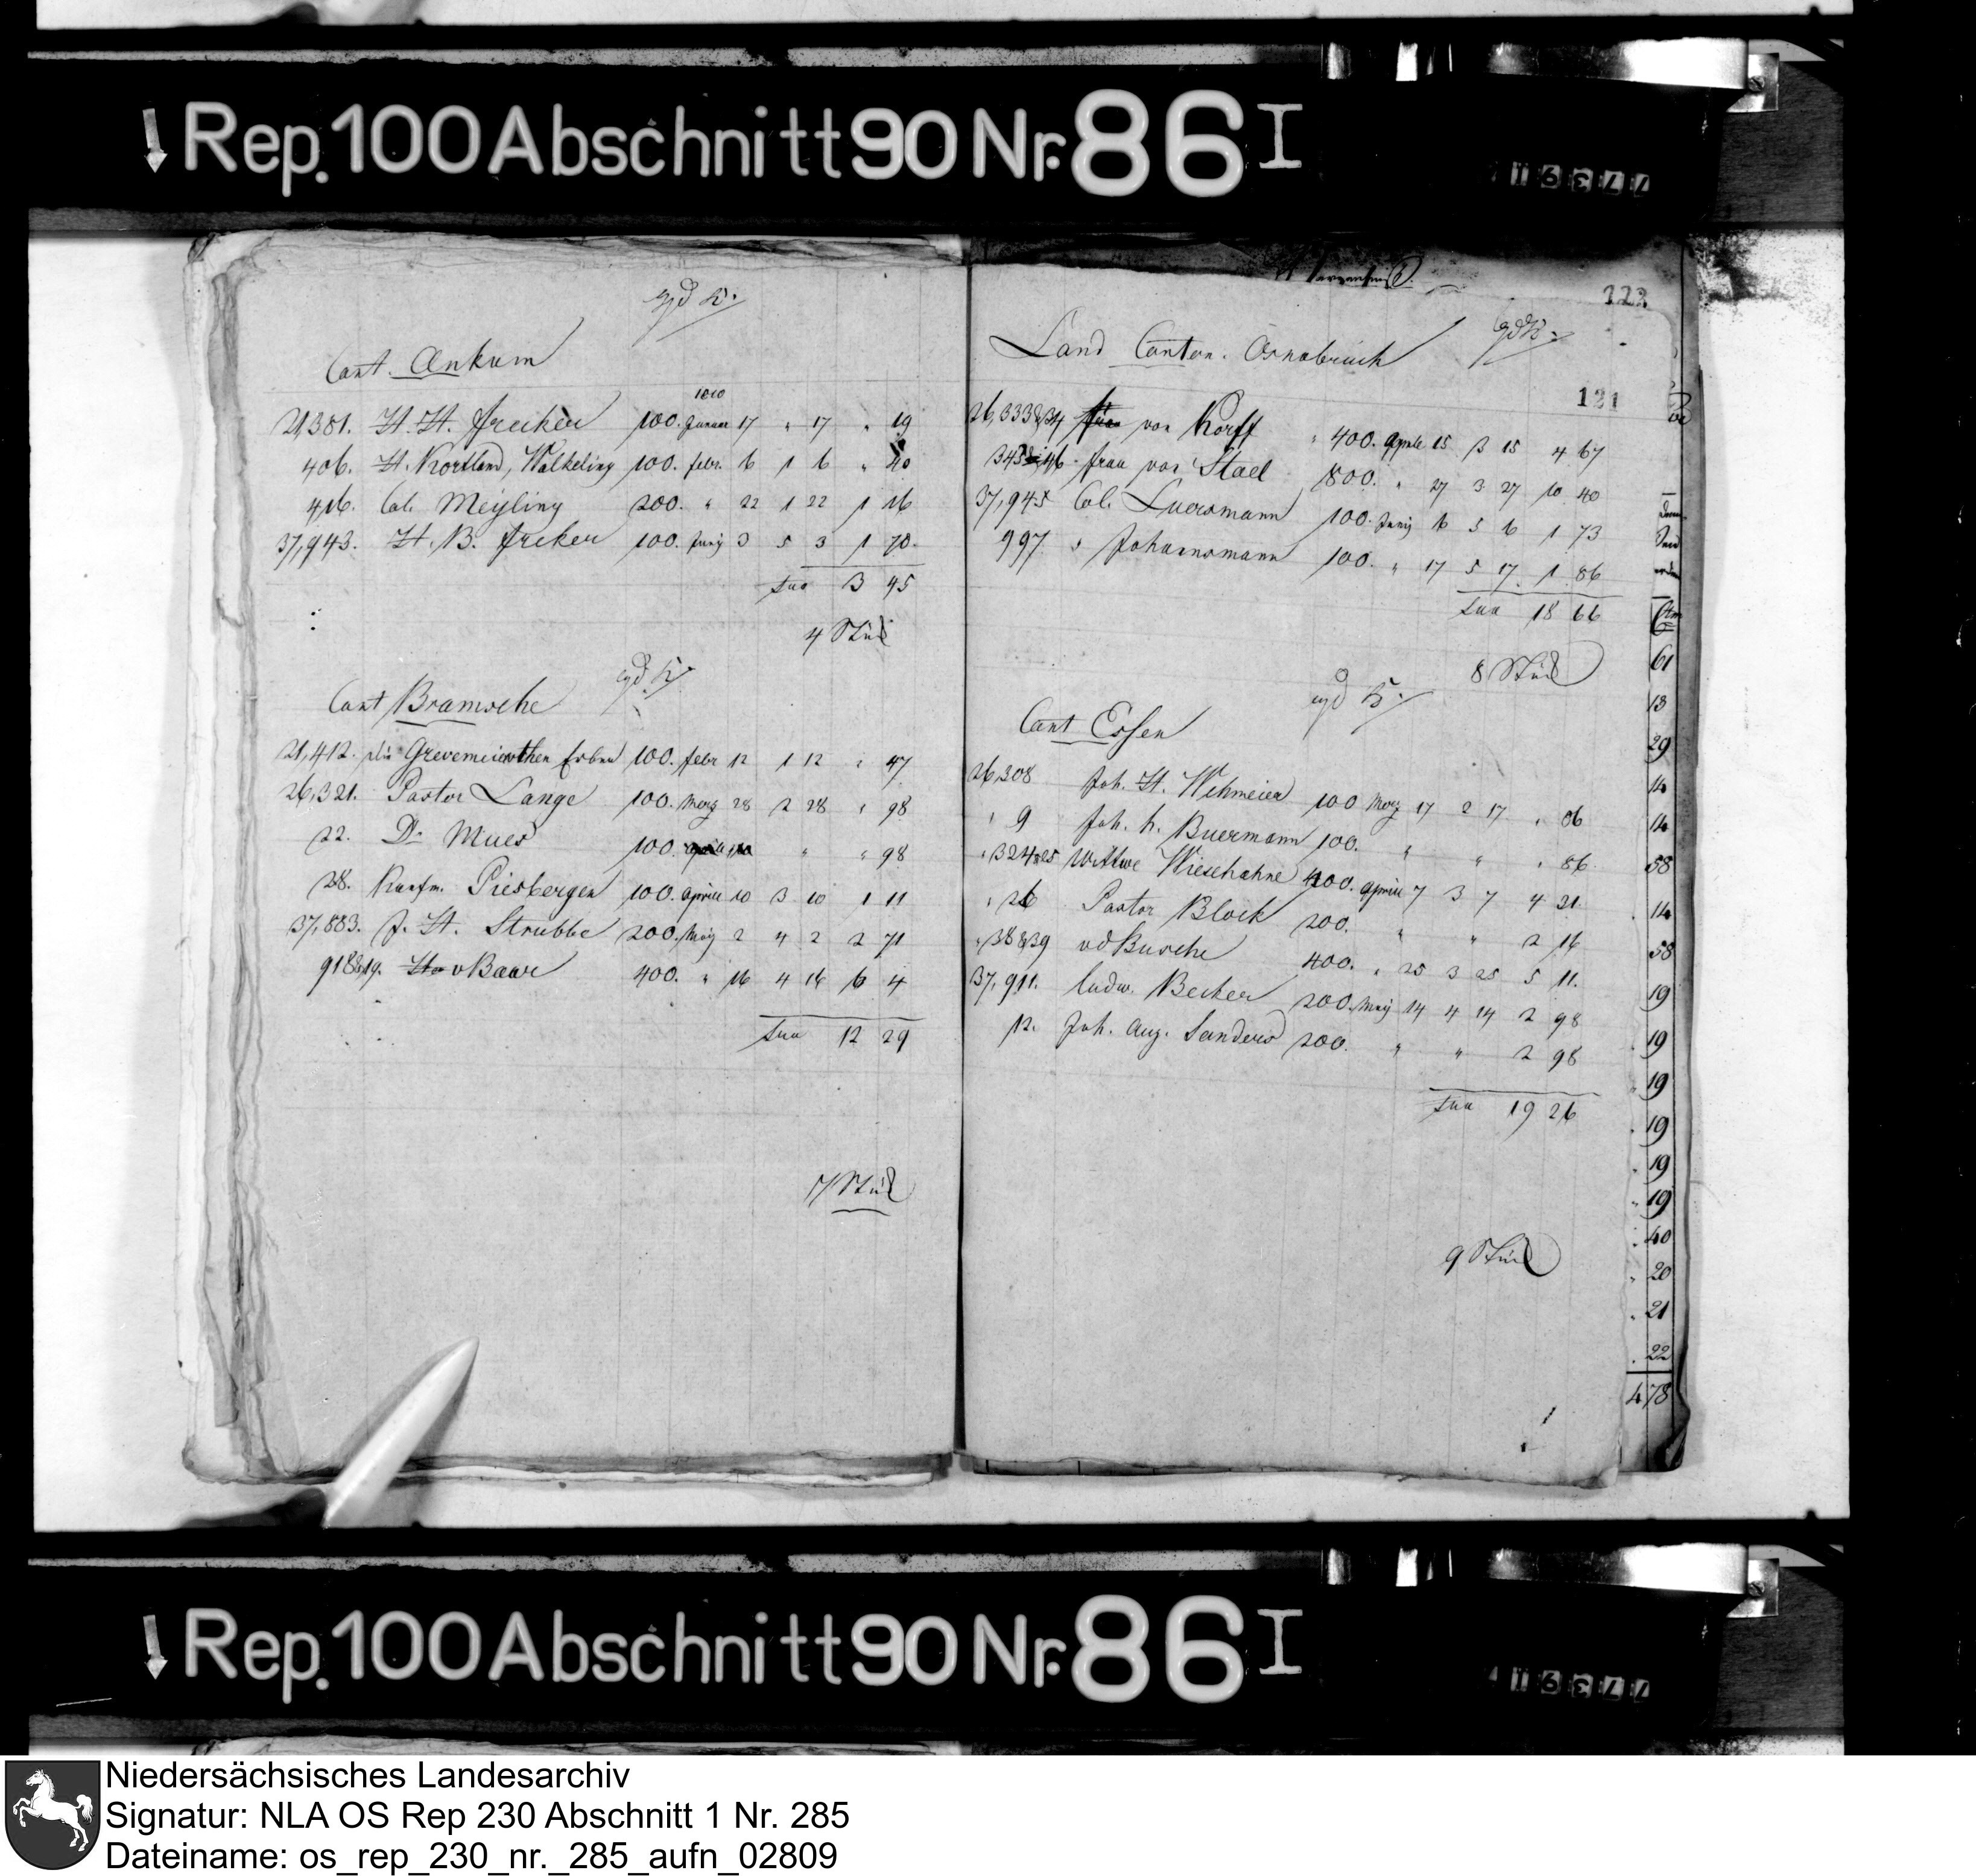 Rep. 100 Abschnitt 90 Nr. 86 I
Cant. Ankum
1810
21,381. H. H. freiker 100. Januar 17 " 17 " 19
406. H. Kortland, Walkeling 100. febr. 6 1 6 " 40
416. Col. Meyling 200. " 22 1 22 1 16
37,943. H. B. freker 100. Juny 3 5 3 1 70.
Sua 3 45
4 Stück
Cant Bramsche
21,412. die Grevemeierschen Erben 100. febr 12 1 12 " 47
26,321. Pastor Lange 100. Merz 28 2 28 " 98
22. Dr Mues 100. " " 98
28. Kaufm. Piesbergen 100. April 10 3 10 1 11
37,883. J. H. Strubbe 200. May 2 4 2 2 71
918&19. v Baar 400. " 16 4 16 6 4
Sua 12 29
7 Stück
122
Land Canton. Osnabrück
121
26,333&34 von Korff " 400. April 15 3 15 4 67
343 46. frau von Stael 800. " 27 3 27 10 40
37,945 Col. Luersmann 100. Juny 6 5 6 1 73
997. " Johannsmann 100. " 17 5 17. 1 86
Sua 18 66
8 Stück
Cant Essen
26,308 Joh. H. Wehmeier 100 Merz 17 2 17 " 86
" 9 Joh. h. Buermann 100. " " " 86.
" 324&25 Wittwe Wiesehahne 400. April 7 3 7 4 21
" 26 Pastor Block 200. " " 2 16
" 38&39 vd Busche 400. " 25 3 25 5 11.
37,911. Ludw. Becker 200. May 14 4 14 2 98
12. Joh. Aug. Sanders 200. " " 2 98
Sua 19 26
9 Stück
61
13
29
14
14
58
14
58
19
19
19
19
19
19
40
20
21
22
478
Rep. 100 Abschnitt 90 Nr. 86 I
Niedersächsisches Landesarchiv
Signatur: NLA OS Rep 230 Abschnitt 1 Nr. 285
Dateiname: os_rep_230_nr._285_aufn_02809